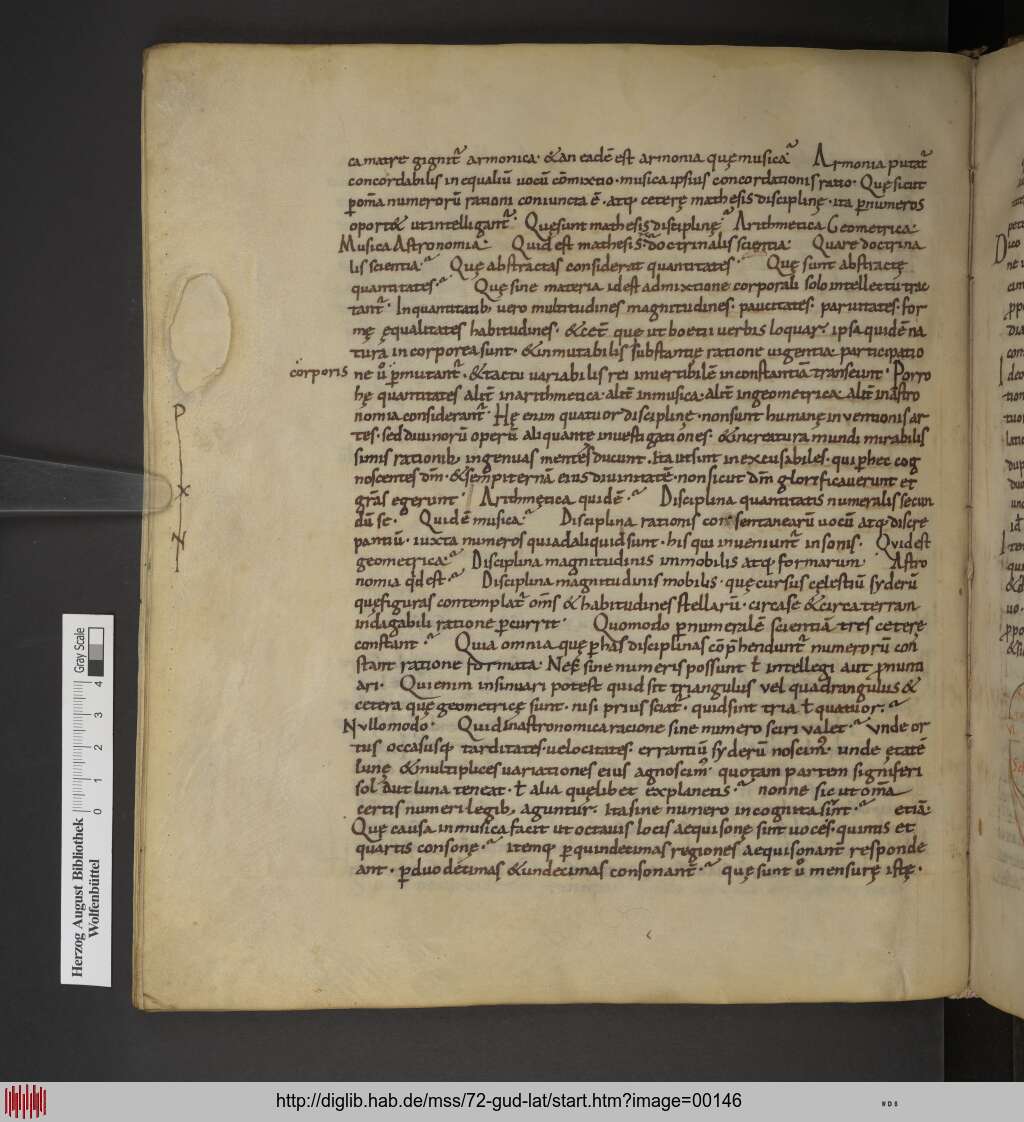 ca matre gignit᷑ armonica· & an eadē est armonia quę musica᷑ Armonia putat᷑
concordabilis inequaliū uocū cōmixtio· musica ipsius concordationis ratio· Quę sicut
ꝑ om̄a numerorū rationi coniuncta ē· atq; cetere mathesis discipline· ita ꝑ numeros
oport& ut intelligant᷑· Quę sunt mathesis discipline᷑ Arithmetica Geometrica·
Musica Astronomia· Quid est mathesis᷑ doctrinalis scientia· Quare doctrina
lis scientia·᷑ Quę abstractas considerat quantitates· Quę sunt abstractę
quantitates·᷑ Quę sine materia id est admixtione corporali solo intellectu trac
tant᷑· In quantitatib; uero multitudines magnitudines· paucitates· paruitates· for
mę ęqualitates habitudines· & cet̄ quę ut boetii uerbis loquar· ipsa quidē na
tura incorporea sunt· & inmutabilis substantię ratione uigentia participatio
corporis ne ů ꝑmutant᷑· & tactu uariabilis rei inuertibilē inconstantiā transeunt· Porro
hę quantitates alit̄ in arithmetica· alit̄ in musica· alit̄ in geometrica· alit̄ in astro
nomia considerant᷑· Hę enim quatuor discipline· non sunt humanę inuentionis ar
tes· sed diuinorū operū aliquantę inuestigationes· & in creatura mundi mirabilis
simis rationib; ingenuas mentes ducunt· Ita ut sint inexcusabiles· qui ꝑ hec cog
noscentes dm̄· & sempiternā eius diuinitatē· non sicut dm̄ glorificauerunt et
grās egerunt· Arithmętica quidē·᷑ Disciplina quantitatis numeralis secun
dū se· Quidē musica·᷑ Disciplina rationis consentanearū uocū atq; discre
pantiū· iuxta numeros qui ad aliquid sunt· his qui inueniunt᷑ in sonis· Quid est
geometrica·᷑ Disciplina magnitudinis inmobilis atq; formarum Astro
nomia qd est·᷑ Disciplina magnitudinis mobilis· quę cursus cęlestiū syderū
quę figuras contemplat᷑ om̄s & habitudines stellarū· circa se & circa terram
indagabili ratione ꝑcurrit· Quomodo ꝑ numeralē scientiā tres cetere
constant·᷑ Quia omnia quę ꝑ has disciplinas cōp̄hendunt᷑ numerorū con
stant ratione formata· Nec sine numeris possunt ł intellegi aut ꝓnunti
ari· Qui enim insinuari potest quid sit triangulus vel quadrangulus &
cetera quę geometricę sunt· nisi prius sciat᷑· quid sint tria ł quatuor·᷑
Nullo modo· Quid in astronomica racione sine numero sciri valet·᷑ Unde or
tus occasusq; tarditates· uelocitates· errantiū syderū noscim᷒· unde ętatē
lunę & multiplices uariationes eius agnoscim᷒· quotam partem signiferi
sol aut luna teneat· ł alia quęlibet ex planetis·᷑ nonne sic ut om̄a
certis numeri legib; aguntur· Ita sine numero incognita sunt·᷑ etiā·
Quę causa in musica facit ut octauis locis aequisonę sint uoces· quintis et
quartis consonę·᷑ itemq; ꝑ quindecimas regiones aequisonant᷑ responde
ant· ꝑ duodecimas & undecimas consonant·᷑ quę sunt ů mensurę istę·
P
X
N
Herzog August Bibliothek
Wolfenbüttel
0 1 2 3 4
Gray Scale
http://diglib.hab.de/mss/72-gud-lat/start.htm?image=00146
WDB